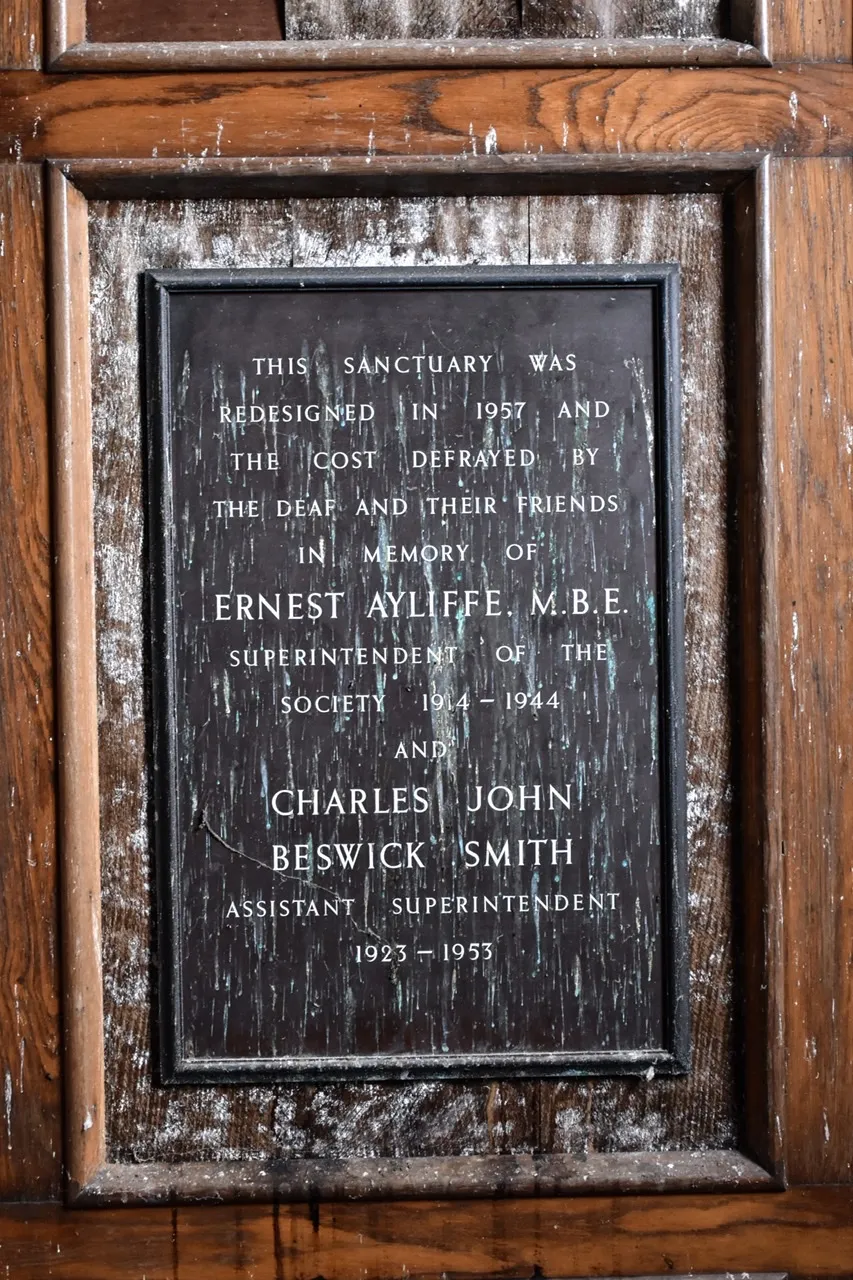 THIS SANCTUARY WAS
REDESIGNED IN 1957 AND
THE COST DEFRAYED BY
THE DEAF AND THEIR FRIENDS
IN MEMORY OF
ERNEST AYLIFFE, M.B.E.
SUPERINTENDENT OF THE
SOCIETY 1914 – 1944
AND
CHARLES JOHN
BESWICK SMITH
ASSISTANT SUPERINTENDENT
1923 – 1953